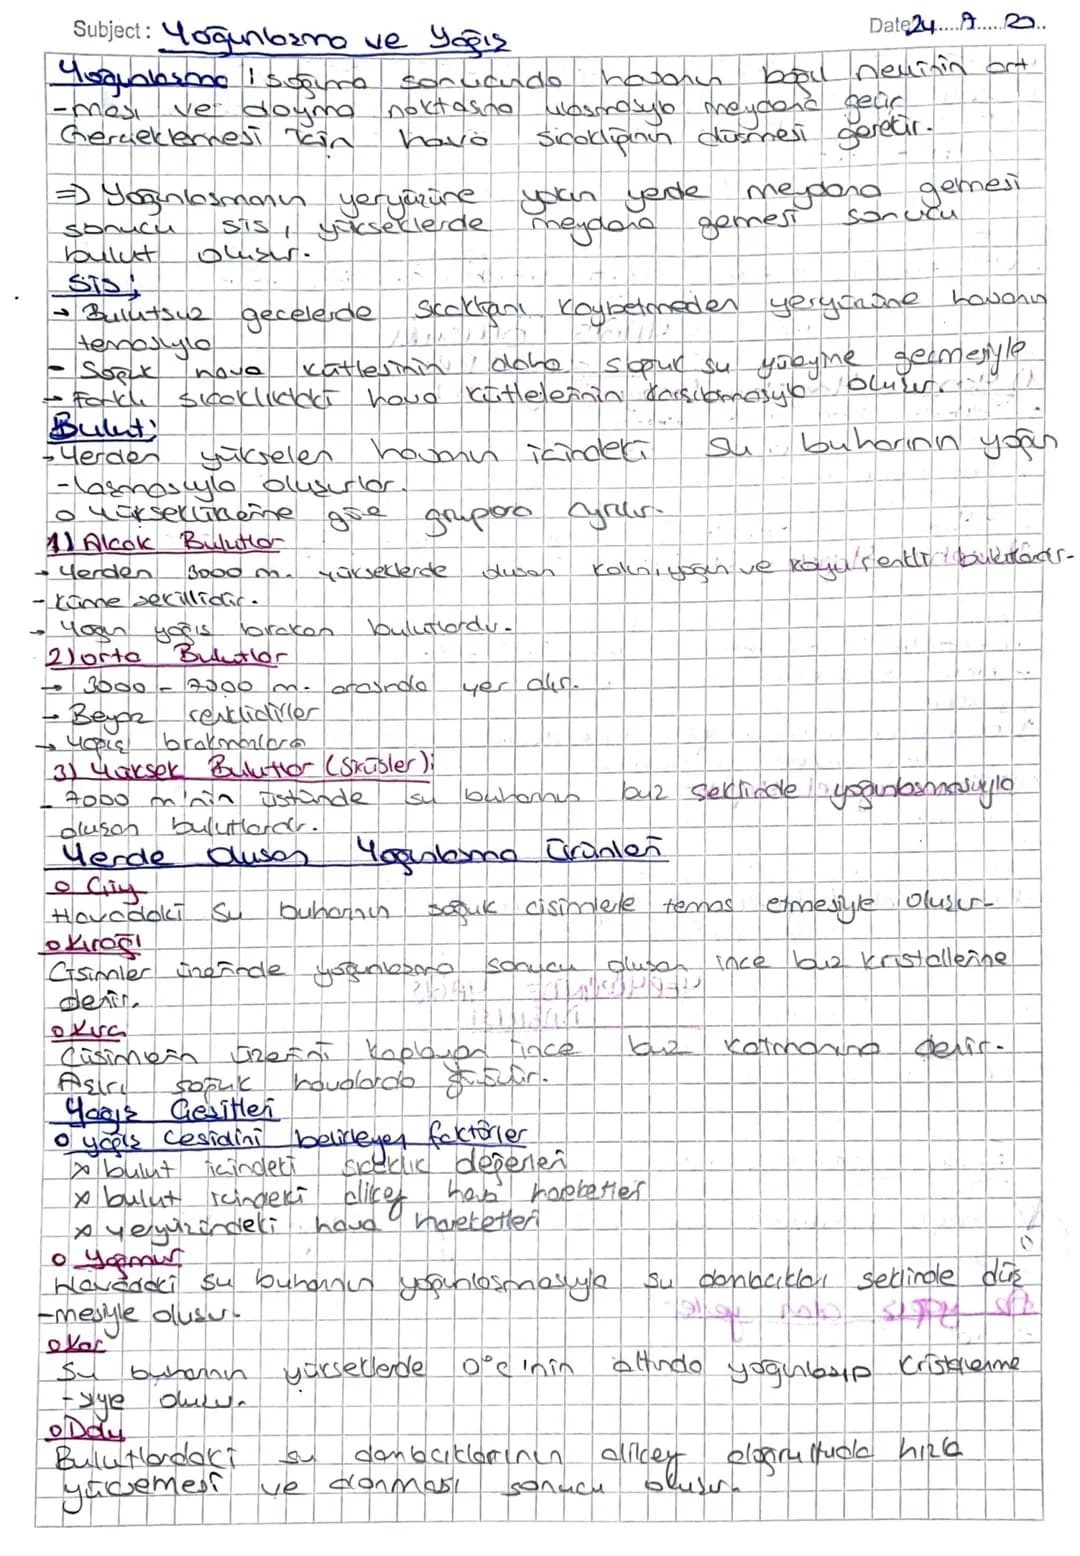 Subject: Yoğunlaşma ve Yağış
Date 24
Yoğunlaşma: soğuma sonucunda havanın bağıl neminin art
-ması ve doyma noktasına ulaşmasıyla meydana gelir
Gerçekleşmesi için hava sıcaklığının düşmesi gerekir.
=> Yoğunlaşmanın yeryüzüne yakın yerde meydana gelmesi
sonucu sis, yükseklerde meydana gelmesi sonucu
bulut oluşur.
Sis:
→ Bulutsuz gecelerde sıcaklığını kaybetmeden yeryüzüne havanın
temasıyla
- Soğuk hava kütlesinin daha soğuk su yüzeyine geçmesiyle
→ Farklı sıcaklıktaki hava kütlelerinin karşılaşmasıyla oluşur.
Bulut:
→ Yerden yükselen havanın içindeki su buharının yoğun
-laşmasıyla oluşurlar.
o Yüksekliklerine göre gruplara ayrılır.
1) Alçak Bulutlar
→ Yerden 3000 m. yükseklerde oluşan kalın, yoğun ve koyu renkli bulutlardır.
- Küme şekillidir.
→ Yoğun yağış bırakan bulutlardır.
2) Orta Bulutlar
→ 3000 - 7000 m. arasında yer alır.
→ Beyaz renklidirler
→ Yağış bırakmazlar
3) Yüksek Bulutlar (Sirüsler):
- 7000 m'nin üstünde su buharının buz şeklinde yoğunlaşmasıyla
oluşan bulutlardır.
Yerde Oluşan Yoğunlaşma Ürünleri
o Çiy
Havadaki su buharının soğuk cisimlerle temas etmesiyle oluşur.
o Kırağı
Cisimler üzerinde yoğunlaşma sonucu oluşan ince buz kristallerine
denir.
o Kırç
Cisimlerin üzerini kaplayan ince buz katmanına denir.
Aşırı soğuk havalarda
Yağış Çeşitleri
o yağış çeşidini belirleyen faktörler
x bulut içindeki sıcaklık değerleri
x bulut içindeki dikey hava hareketleri
x yeryüzündeki hava hareketleri
o Yağmur
Havadaki su buharının yoğunlaşmasıyla su damlacıkları şeklinde düş
-mesiyle oluşur.
o Kar
Su buharının yükseklerde 0°C'nin altında yoğunlaşıp kristallenme
-siyle oluşur.
o Dolu
Bulutlardaki su damlacıklarının dikey doğrultuda hızla
yükselmesi ve donması sonucu oluşur.